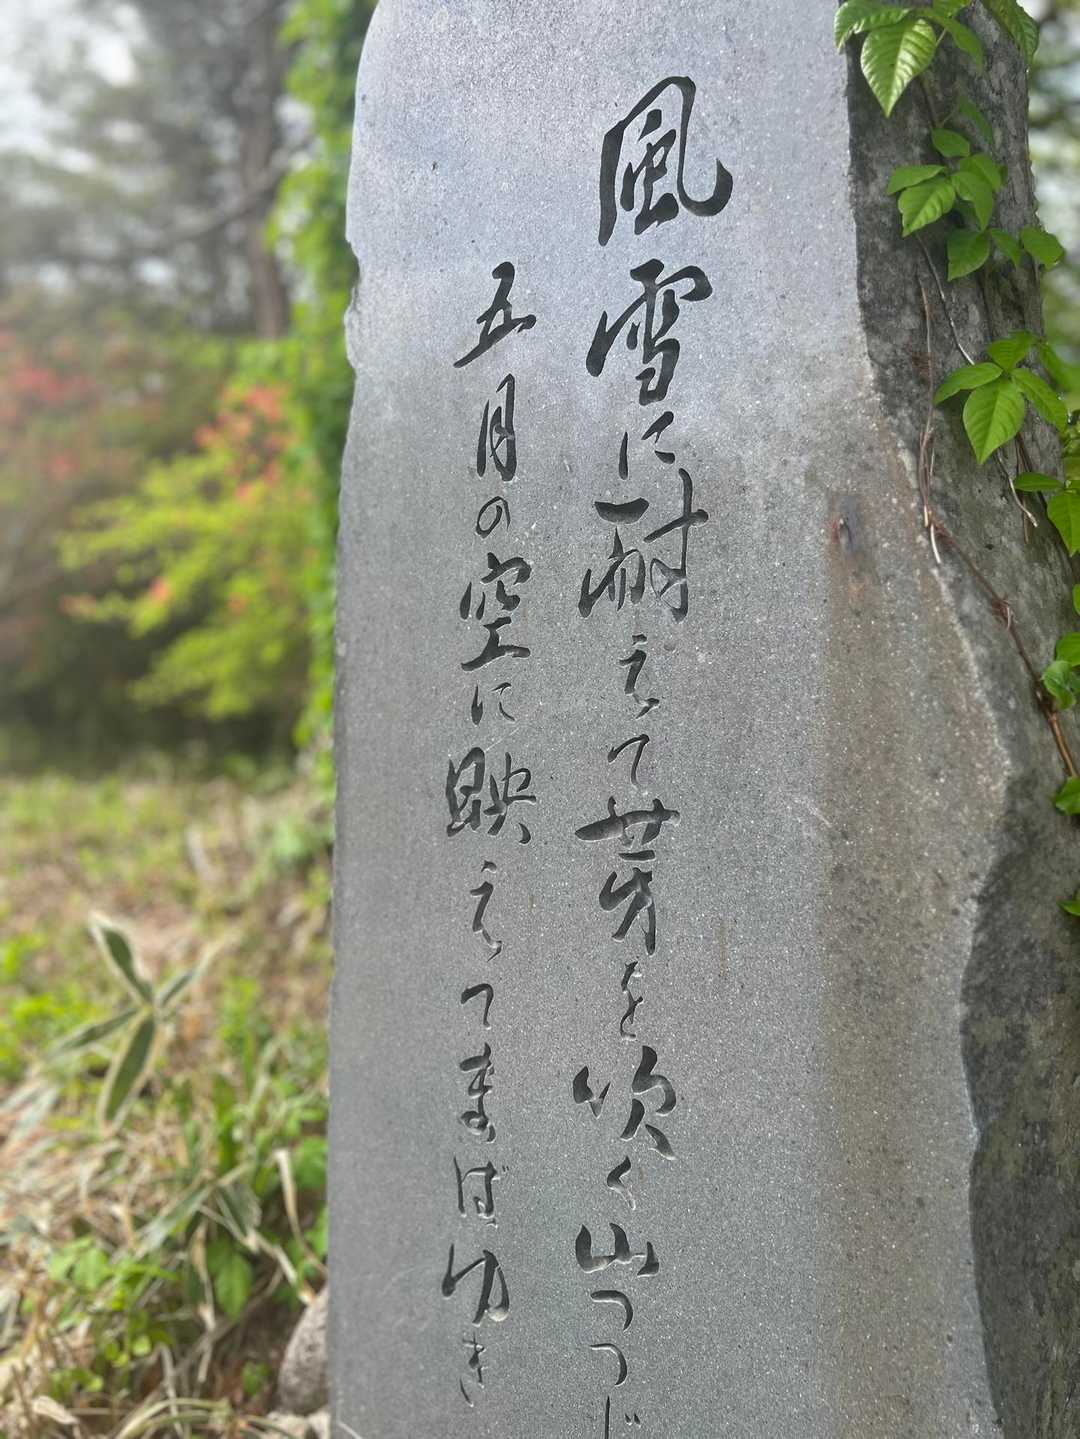 風雪に耐えて芽を吹く山つつじ
五月の空に映えてまばゆき